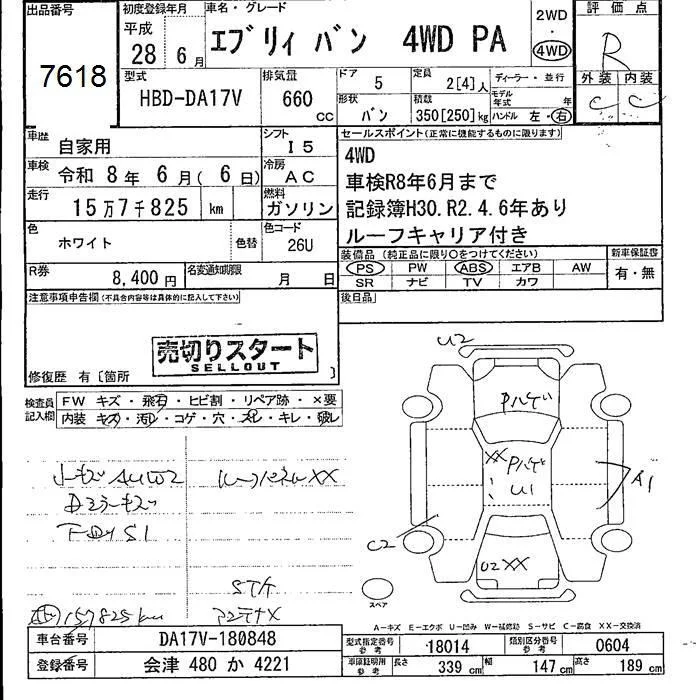 出品番号
7618
初度登録年月
平成
28年6月
車名・グレード
エブリィ バン 4WD PA
2WD
4WD
評価点
R
外装 内装
C C
型式
HBD-DA17V
排気量
660 cc
ドア
5
定員
2[4]人
ディーラー・並行
モデル年式 年
形状
バン
積載
350[250]kg
ハンドル 左・右
車歴
自家用
シフト
I5
車検
令和 8年 6月( 6日)
冷房
AC
走行
15万7千825 km
燃料
ガソリン
色
ホワイト
色替
色コード
26U
R券
8,400円
名変通知期限
月 日
セールスポイント(正常に機能するものに限ります)
4WD
車検R8年6月まで
記録簿H30.R2.4.6年あり
ルーフキャリア付き
装備品(純正品に限り○をつけてください)
PS PW ABS エアB AW
SR ナビ TV カワ
新車保証書
有・無
後日品
注意事項申告欄(不具合内容等は具体的に記入して下さい)
売切りスタート
SELLOUT
修復歴 有〔箇所 〕
検査員記入欄
FW キズ・飛石・ヒビ割・リペア跡・×要
内装 キズ・汚レ・コゲ・穴・スレ・キレ・破レ
ルーフパネルXX
157825km
アンテナX
U2
XX
U1
A1
C2
U2XX
スペア
A-キズ E-エクボ U-凹み W-補修跡 S-サビ C-腐食 XX-交換済
車台番号
DA17V-180848
登録番号
会津 480 か 4221
型式指定番号
参考
18014
類別区分番号
参考
0604
車庫証明用
参考
長さ
339 cm
幅
147 cm
高さ
189 cm